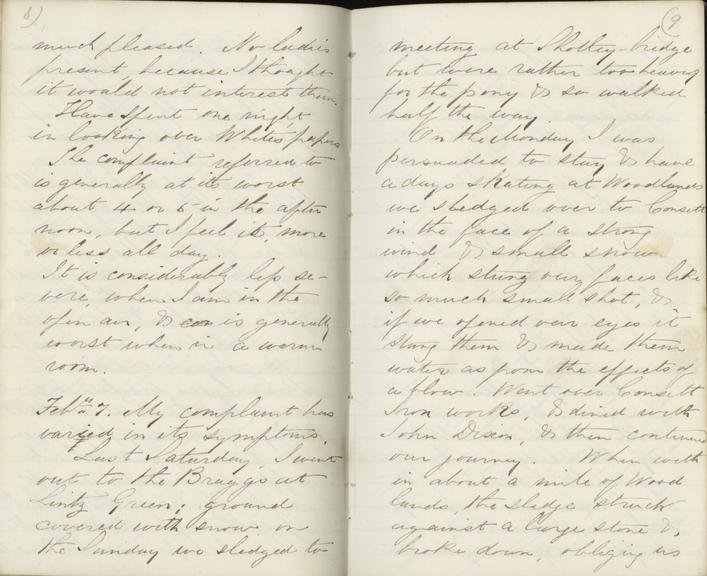 8)
much pleased. No ladies
present, because I thought
it would not interest them.
Have spent one night
in looking over White's papers
The complaint referred to
is generally at its worst
about 4 or 5 in the after
noon, but I feel it, more
or less all day.
It is considerably less se-
vere, when I am in the
open air, & is generally
worst when in a warm
room.
Feby 7. My complaint has
varied in its symptoms.
Last Saturday, I went
out to the Braggs at
Lintz Green; ground
covered with snow on
the Sunday we sledged to
(9
meeting at Shotley-bridge
but were rather too heavy
for the pony & so walked
half the way.
On the Monday I was
persuaded to stay & have
a days skating at Woodlands
we sledged over to Consett
in the face of a strong
wind & small snow
which stung our faces like
so much small shot, &
if we opened our eyes it
stung them & made them
water as from the effects of
a blow. Went over Consett
Iron works, & dined with
John Dixon, & then continued
our journey. When with
in about a mile of Wood
lands, the sledge struck
against a large stone &
broke down, obliging us